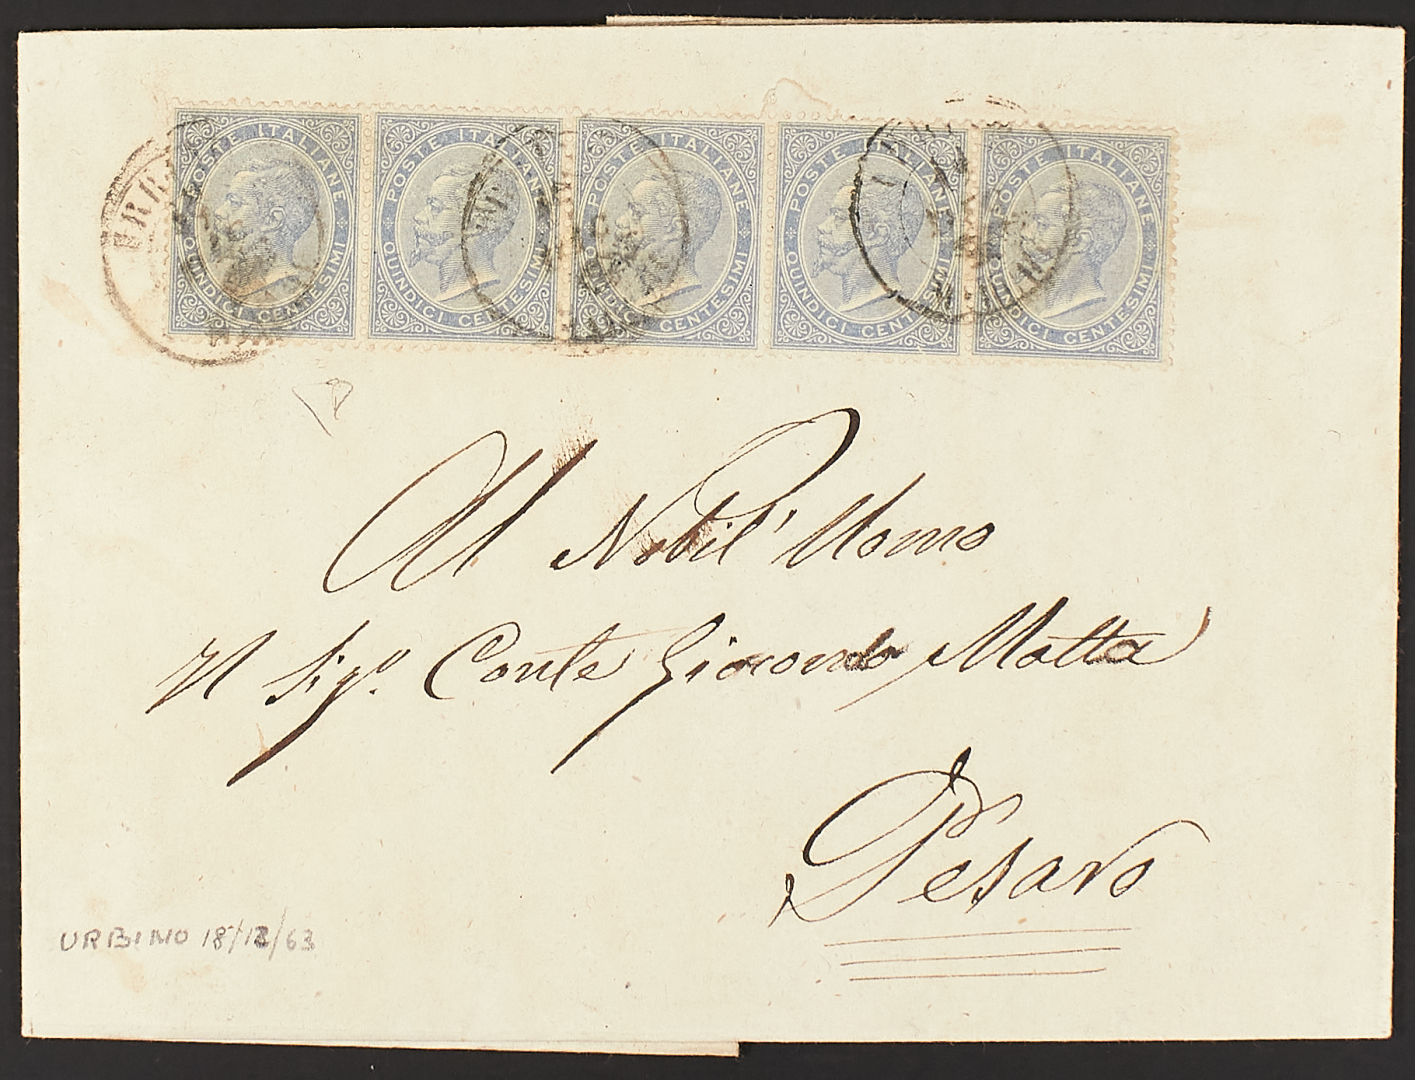 POSTE ITALIANE POSTE ITALIANE POSTE ITALIANE POSTE ITALIANE POSTE ITALIANE
QUINDICI CENTESIMI QUINDICI CENTESIMI CENTESIMI QUINDICI CENTESIMI CENTESIMI
Al Nobil' Uomo
Il Sigr. Conte Giocondo Matta
Pesaro
URBINO 18/12/63